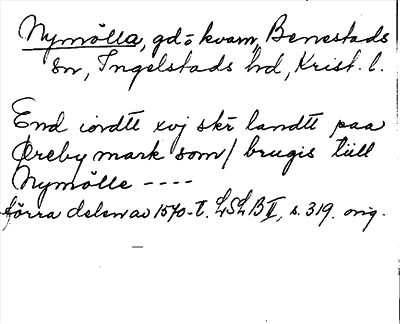 Nymölla, gd o kvarn, Benestads
sn, Ingelstads hd, Krist. l.
End iordtt xvj skr landtt paa
Øreby mark som / brugis tiill
Nymölle ----
förra delen av 1570-t. LSLB II, s. 319. orig.